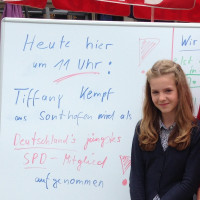 Heute hier
um 11 Uhr:
Tiffany Kempf
aus Sonthofen wird als
Deutschland's jüngstes
SPD-Mitglied
aufgenommen
Wir